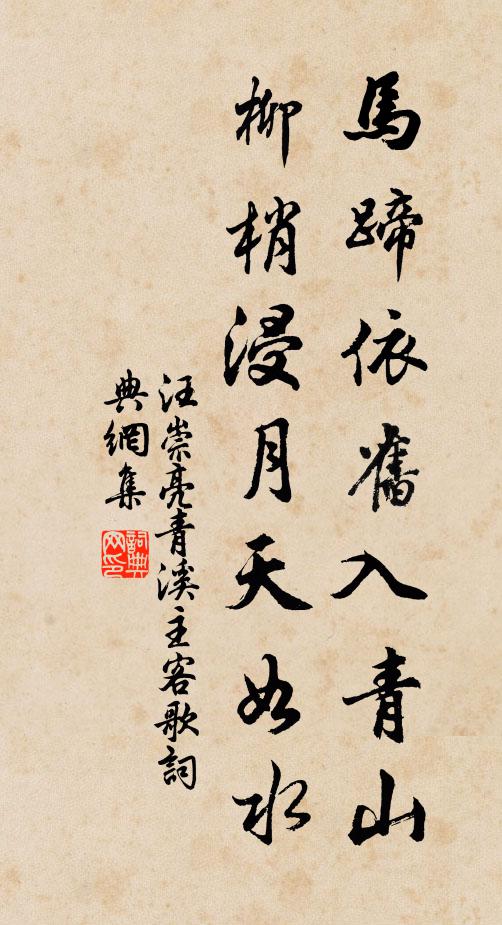 馬蹄依舊入青山
柳梢浸月天如水
汪崇亮青溪主客歌詞
典網集
詞典网印